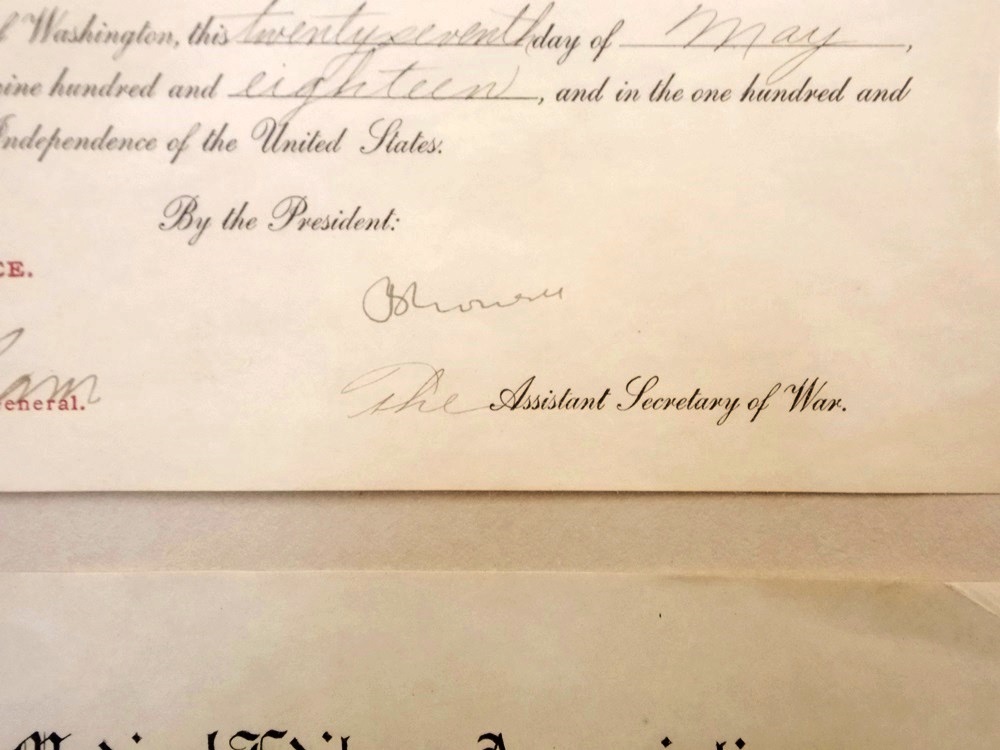 Washington, this twenty seventh day of May,
nine hundred and eighteen, and in the one hundred and
Independence of the United States.
By the President:
CE.
The Assistant Secretary of War.
eneral.